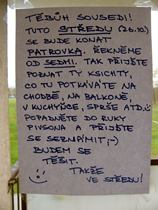 TĚBŮH SOUSEDI!
TUTO STŘEDU (26.10)
SE BUDE KONAT
PATROVKA. ŘEKNĚME
OD SEDMI. TAK PŘIJĎTE
POZNAT TY KSICHTY,
CO TU POTKÁVÁTE NA
CHODBĚ, NA BALKONĚ,
V KUCHYŇCE, SPRŠE ATD.
POPADNĚTE DO RUKY
PIVSONA A PŘIJĎTE
SE SERNÁMIT ;-)
BUDEM SE
TĚŠIT.
TAKŽE
VE STŘEDU!